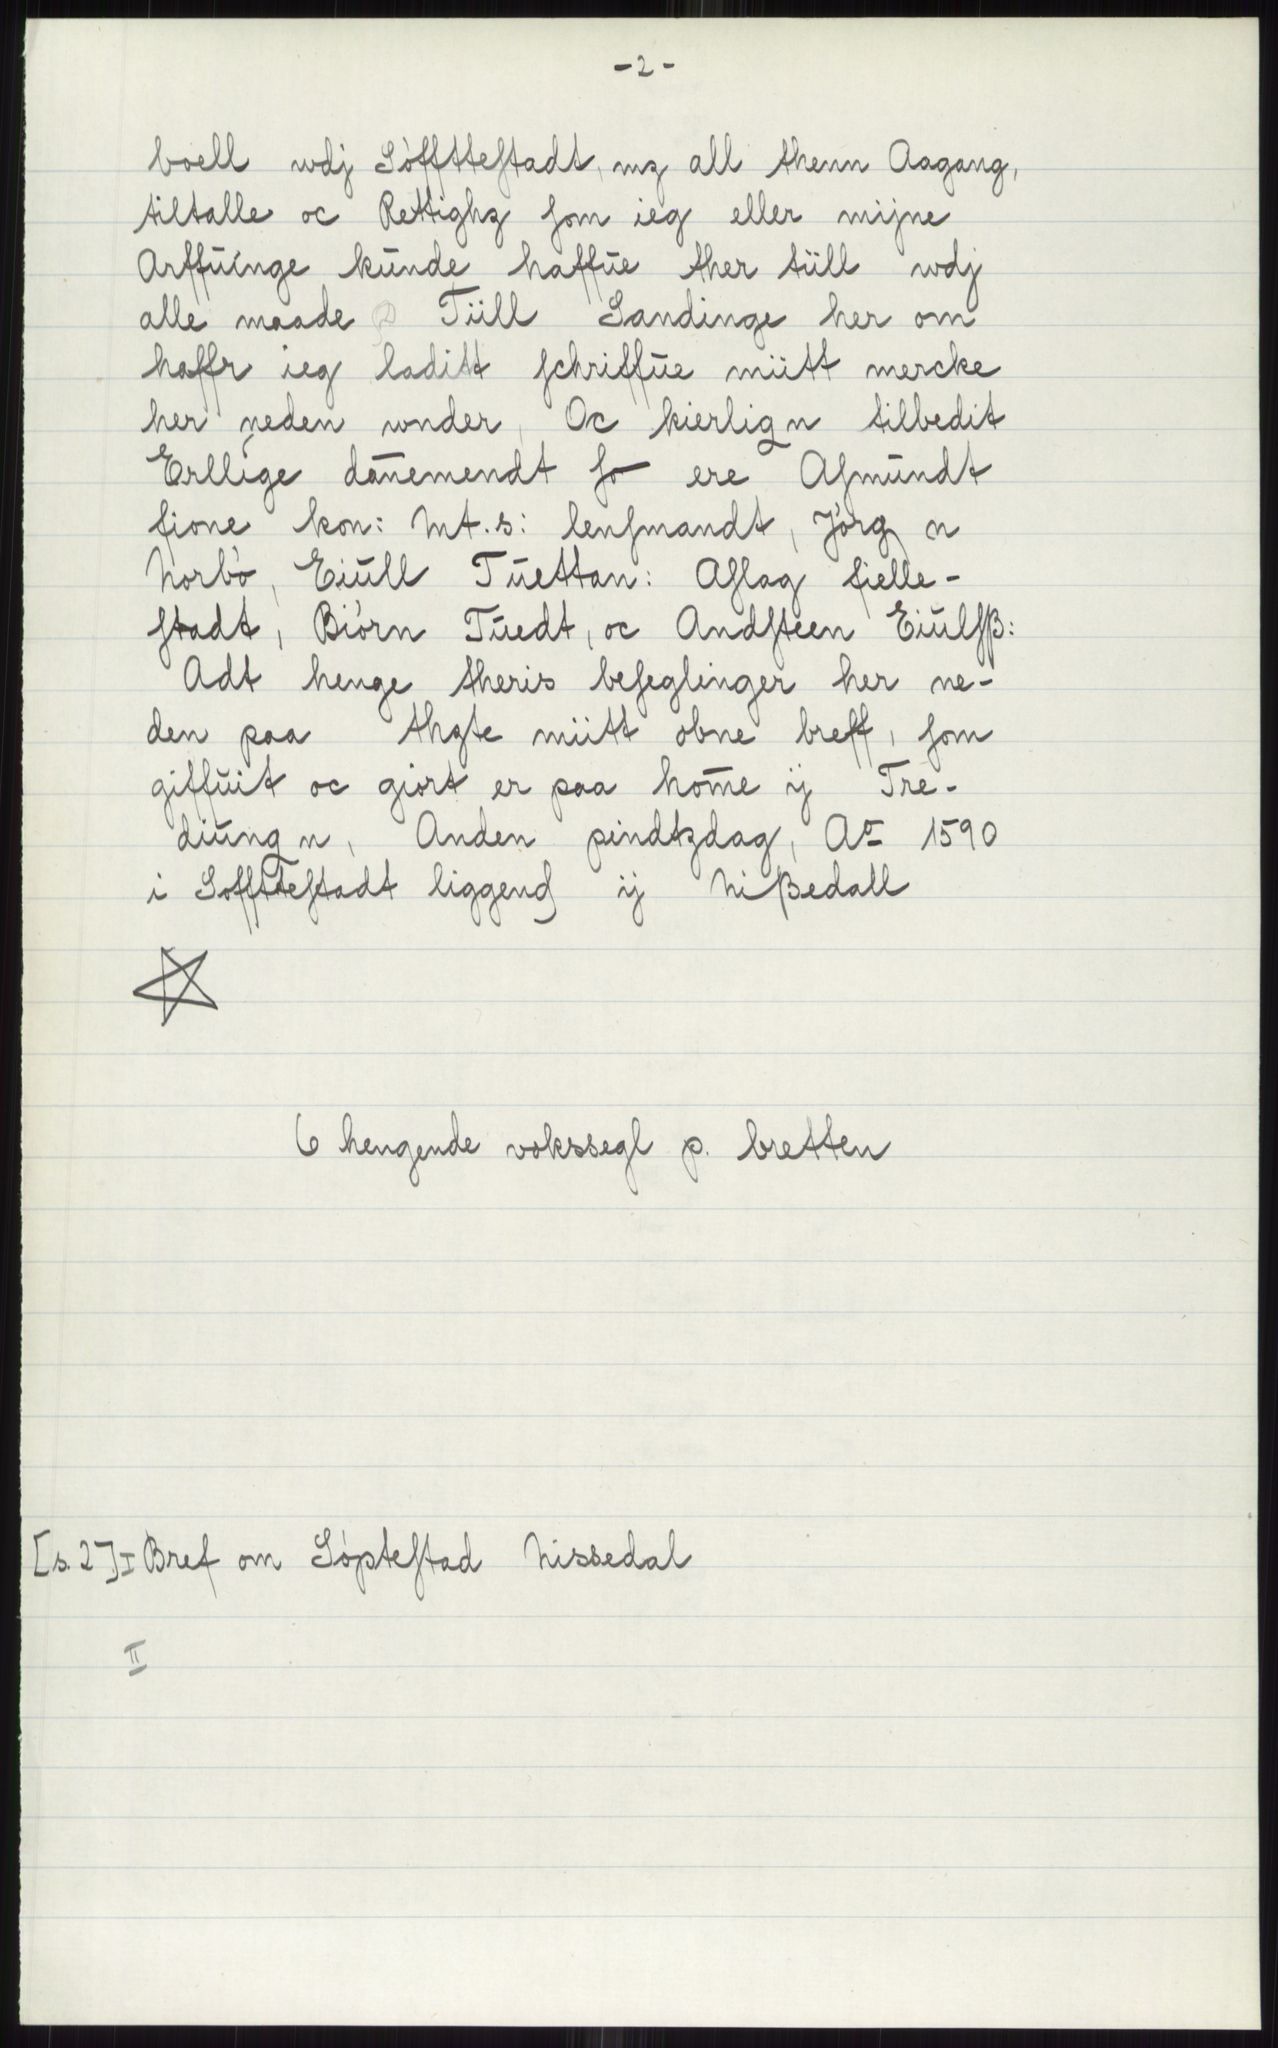 -2-
boell wdj Söfftteſtadt, mz all thenn Aagang,
tiltalle oc Rettighz ſom ieg eller mijne
Arffuinge kunde haffue ther tiill wdj
alle maade Tiill Sandinge her om
haffr ieg laditt ſchriffue miitt mercke
her neden wnder, Oc kierlig n tilbedit
Erllige dānemendt ſo ere Aſmundt
fione kon: Mt.s: lenſmandt, Jörg n
Norbö, Eiull Tuettan: Aſlag fielle-
ſtadt, Biörn Tuedt, oc Andſteen Eiulſß:
Adt henge theris beſeglinger her ne-
den paa thzte miitt obne breff, ſom
giffuit oc giört er paa hom̄e ij Tre-
diung n, Anden pindtzdag, Aº 1590
i Sofftteſtadt liggend ij Nißedall
6 hengende vokssegl p. bretten
[s. 2] I Bref om Söpteſtad Nissedal
II